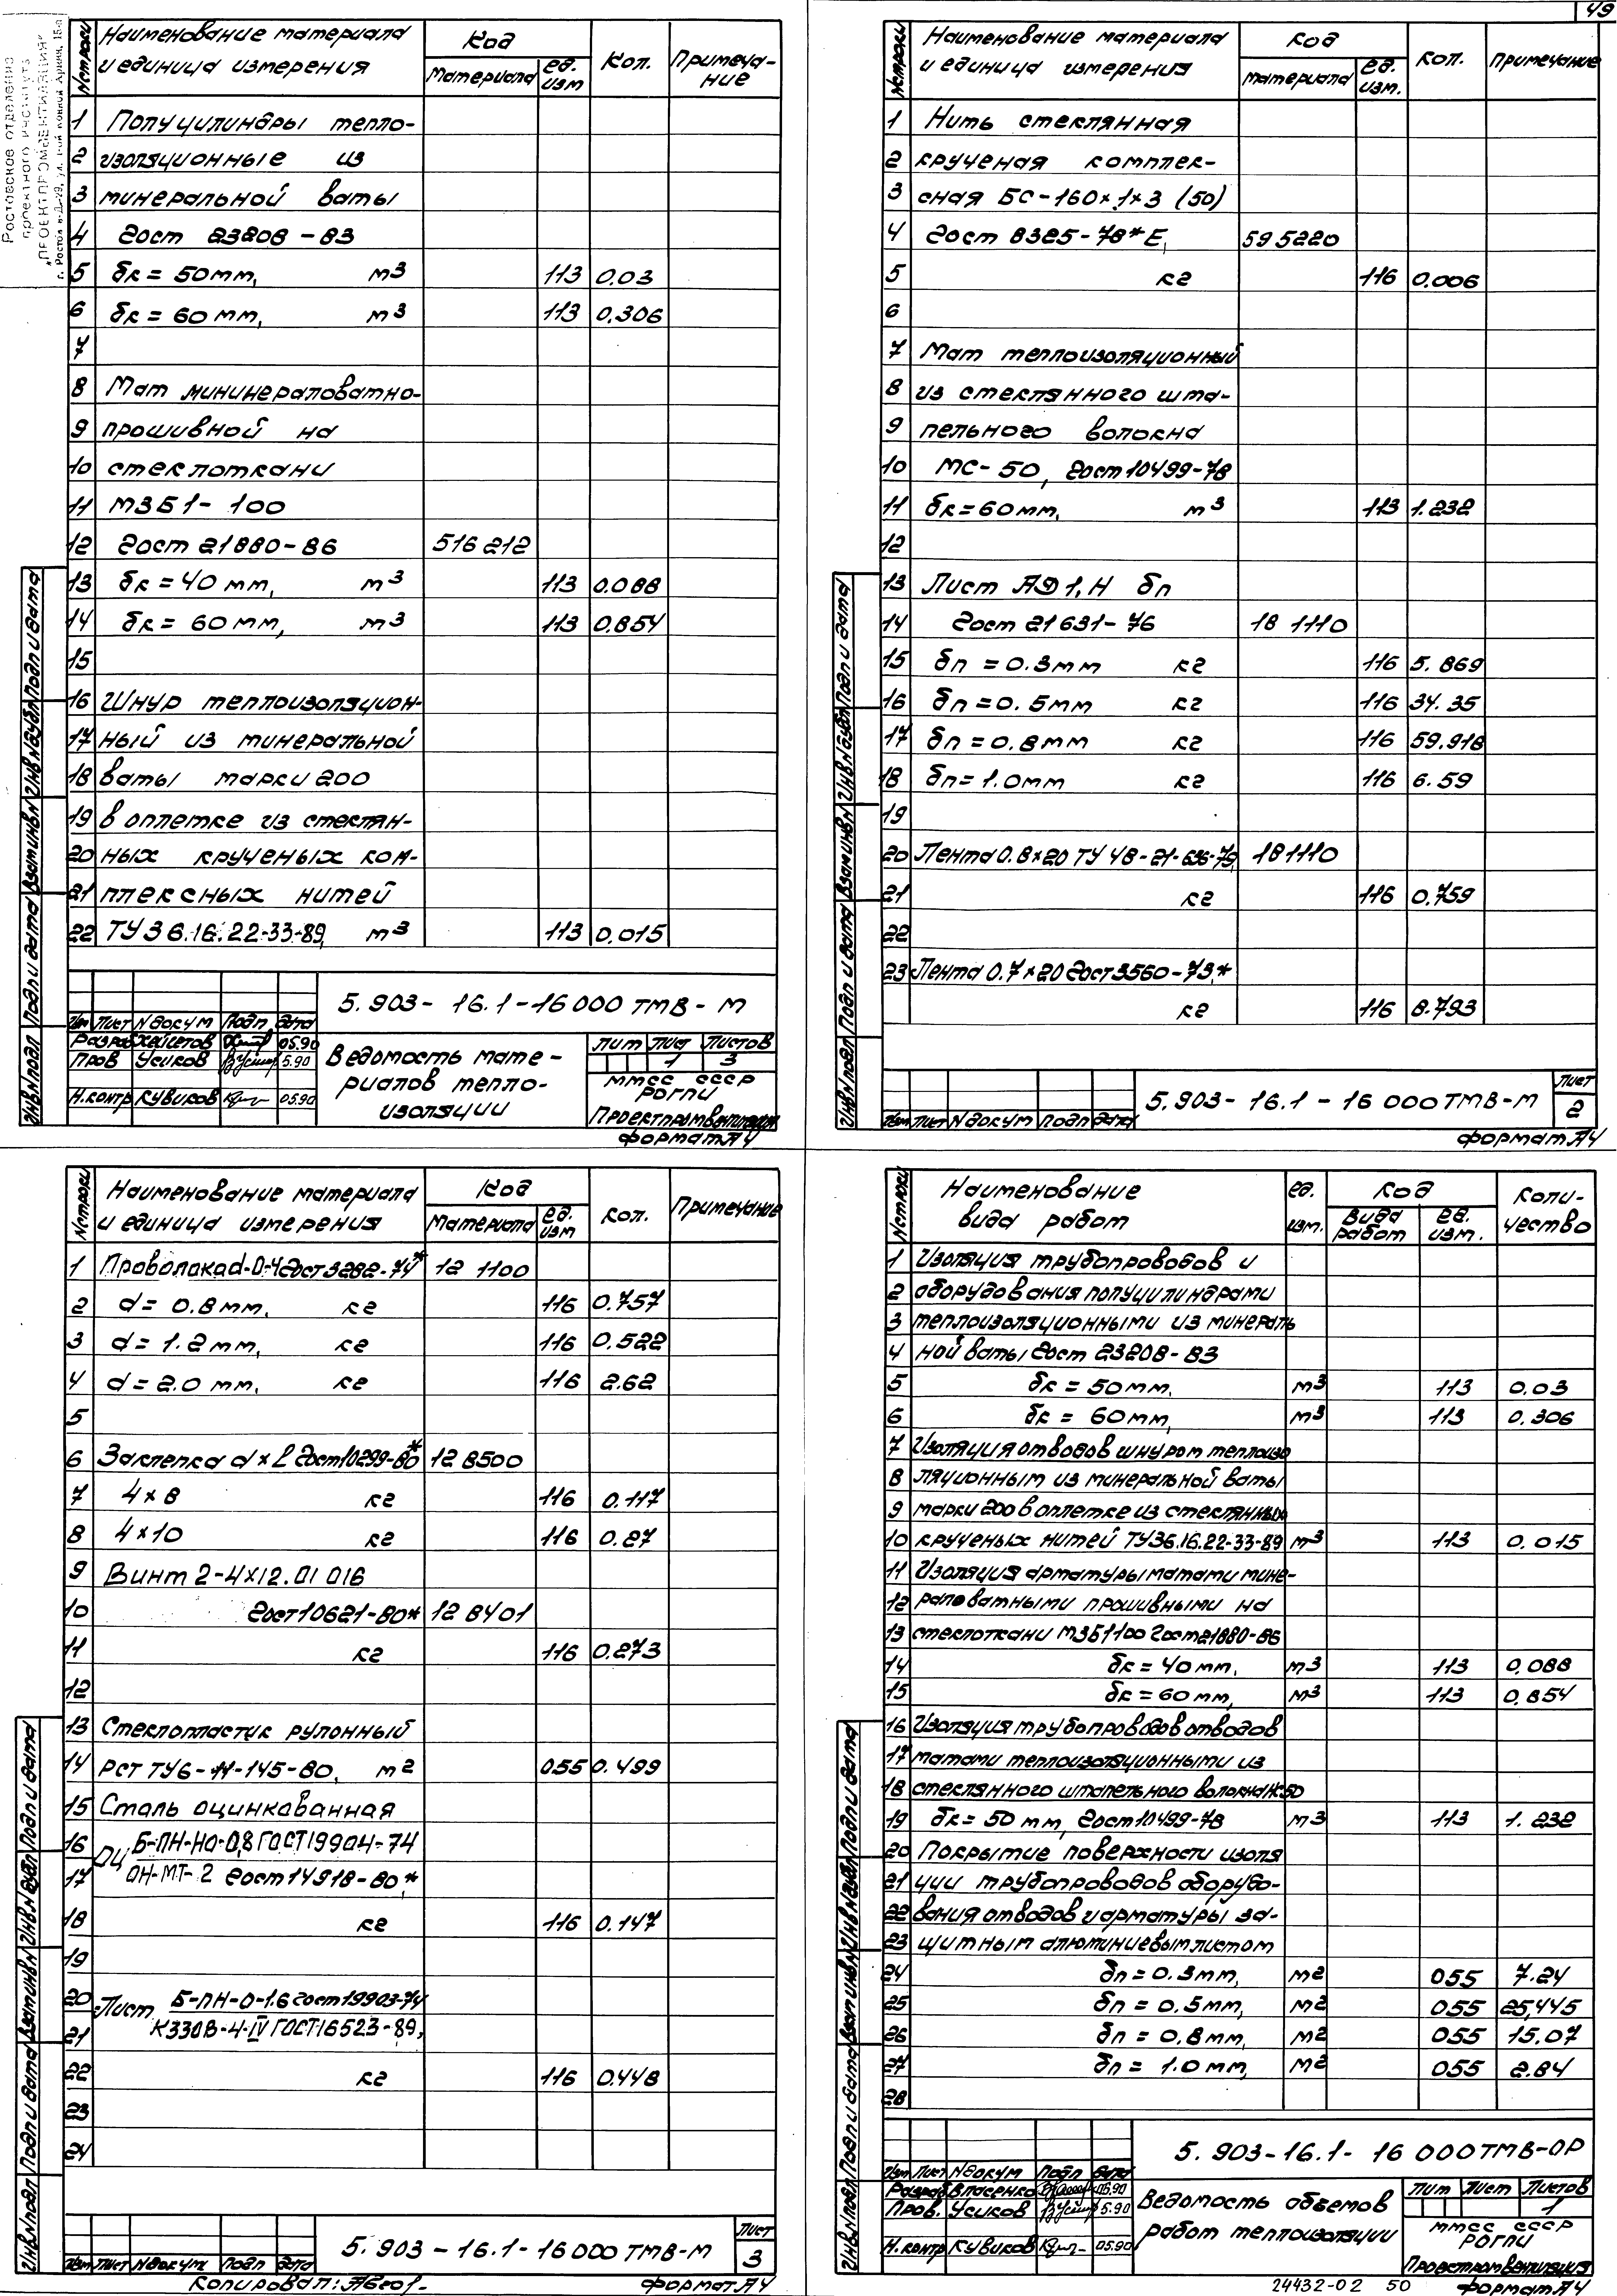 Ростовское отделение
проектного института
„ПРОЕКТПРОМВЕНТИЛЯЦИЯ“
№ строки
Наименование материала
и единица измерения
Код
материала
ед. изм
Кол.
Примечание
1 Полуцилиндры тепло-
2 изоляционные из
3 минеральной ваты
4 Гост 23208-83
5 δк = 50мм, м3 113 0.03
6 δк = 60мм, м3 113 0.306
7
8 Мат мининераловатно-
9 прошивной на
10 стеклоткани
11 МЗБ1-100
12 Гост 21880-86 516 212
13 δк = 40мм, м3 113 0.088
14 δк = 60мм, м3 113 0.854
15
16 Шнур теплоизоляцион-
17 ный из минеральной
18 ваты марки 200
19 в оплетке из стеклян-
20 ных крученых ком-
21 плексных нитей
22 ТУ 36.16.22-33-89, м3 113 0.015
5.903-16.1-16 000 ТМВ-М
Изм Лист N докум Подп Дата
05.90
Пров Усиков 5.90
Н.контр Кувиков 05.90
Ведомость мате-
риалов тепло-
изоляции
Лит Лист Листов
1 3
ММСС СССР
РОГПИ
Проектпромвентиляция
формат А4
Инв N подл Подп и дата Взам инв N Инв N дубл Подп и дата
49
№ строки
Наименование материала
и единица измерения
Код
материала
ед. изм.
Кол.
Примечание
1 Нить стеклянная
2 крученая комплек-
3 сная БС-160×1×3 (50)
4 Гост 8325-78*Е, 59 5220
5 кг 116 0.006
6
7 Мат теплоизоляционный
8 из стеклянного шта-
9 пельного волокна
10 МС-50, Гост 10499-78
11 δк = 60мм, м3 113 1.232
12
13 Лист АД1,Н δп
14 Гост 21631-76 18 1110
15 δп = 0.3мм кг 116 5.869
16 δп = 0.5мм кг 116 34.35
17 δп = 0.8мм кг 116 59.918
18 δп = 1.0мм кг 116 6.59
19
20 Лента 0.8×20 ТУ 48-21-636-79, 181110
21 кг 116 0.759
22
23 Лента 0.7×20 Гост 3560-73,*
кг 116 8.793
Изм Лист N докум Подп Дата
5.903-16.1-16 000 ТМВ-М
Лист
2
формат А4
Инв N подл Подп и дата Взам инв N Инв N дубл Подп и дата
№ строки
Наименование материала
и единица измерения
Код
Материала
ед. изм
Кол.
Примечание
1 Проволока d-0-4 Гост 3282-74* 12 1100
2 d = 0.8мм, кг 116 0.757
3 d = 1.2мм, кг 116 0.522
4 d = 2.0 мм, кг 116 2.62
5
6 Заклепка d×L Гост 10299-80* 12 8500
7 4×8 кг 116 0.117
8 4×10 кг 116 0.27
9 Винт 2-4×12.01 016
10 Гост 10621-80* 12 8401
11 кг 116 0.273
12
13 Стеклопластик рулонный
14 РСТ ТУ6-11-145-80, м2 055 0.499
15 Сталь оцинкованная
16 ОЦ Б-ПН-НО-0,8 ГОСТ 19904-74
17 ОН-МТ-2 Гост 14918-80,*
18 кг 116 0.147
19
20 Лист Б-ПН-О-1.6 Гост 19903-74
21 К330В-4-IV ГОСТ 16523-89,
22 кг 116 0.448
23
24
Изм Лист N докум Подп Дата
5.903-16.1-16 000 ТМВ-М
Лист
3
Копировал:
формат А4
Инв N подл Подп и дата Взам инв N Инв N дубл Подп и дата
№ строки
Наименование
вида работ
ед. изм.
Код
Вида работ
ед. изм.
Коли-
чество
1 Изоляция трубопроводов и
2 оборудования полуцилиндрами
3 теплоизоляционными из минераль
4 ной ваты Гост 23208-83
5 δк = 50мм, м3 113 0.03
6 δк = 60мм, м3 113 0.306
7 Изоляция отводов шнуром теплоизо
8 ляционным из минеральной ваты
9 марки 200 в оплетке из стеклянных
10 крученых нитей ТУ36.16.22-33-89 м3 113 0.015
11 Изоляция арматуры матами мине-
12 раловатными прошивными на
13 стеклоткани МЗБ1100 Гост 21880-86
14 δк = 40мм, м3 113 0.088
15 δк = 60мм, м3 113 0.854
16 Изоляция трубопроводов отводов
17 матами теплоизоляционными из
18 стеклянного штапельного волокна МС50
19 δк = 50 мм, Гост 10499-78 м3 113 1.232
20 Покрытие поверхности изоля
21 ции трубопроводов оборудо-
22 вания отводов и арматуры за-
23 щитным алюминиевым листом
24 δп = 0.3мм, м2 055 7.24
25 δп = 0.5мм, м2 055 25,445
26 δп = 0.8мм, м2 055 15.07
27 δп = 1.0мм, м2 055 2.84
28
5.903-16.1-16 000 ТМВ-ОР
Изм Лист N докум Подп Дата
Разраб Власенко 05.90
Пров. Усиков 5.90
Н.контр Кувиков 05.90
Ведомость объемов
работ теплоизоляции
Лит Лист Листов
1
ММСС СССР
РОГПИ
Проектпромвентиляция
24432-02 50
формат А4
Инв N подл Подп и дата Взам инв N Инв N дубл Подп и дата